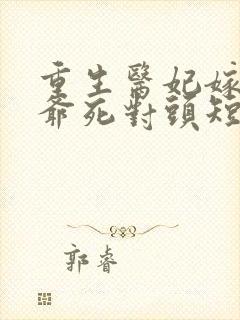 重生醫妃嫁
爺死對頭短
郭睿